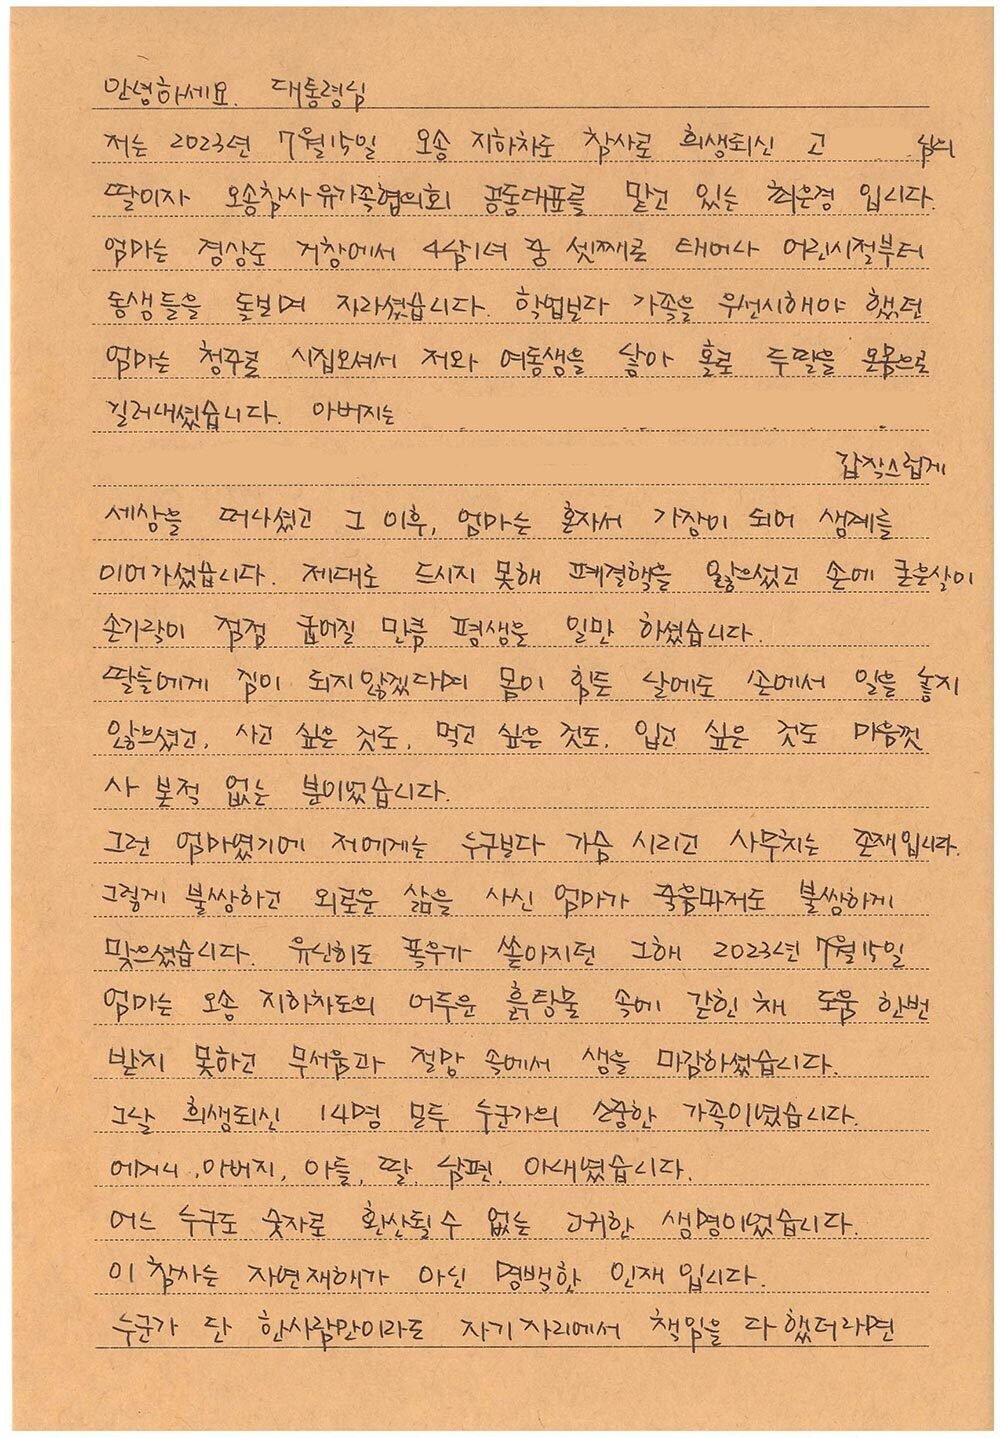 안녕하세요. 대통령님
저는 2023년 7월15일 오송 지하차도 참사로 희생되신 고 님의
딸이자 오송참사 유가족협의회 공동대표를 맡고 있는 최은경 입니다.
엄마는 경상도 거창에서 4남1녀 중 셋째로 태어나 어린시절부터
동생들을 돌보며 자라셨습니다. 학업보다 가족을 우선시해야 했던
엄마는 청주로 시집오셔서 저와 여동생을 낳아 홀로 두딸을 온몸으로
길러내셨습니다. 아버지는
갑작스럽게
세상을 떠나셨고 그 이후, 엄마는 혼자서 가장이 되어 생계를
이어가셨습니다. 제대로 드시지 못해 폐결핵을 앓으셨고 손에 굳은살이
손가락이 점점 굽어질 만큼 평생을 일만 하셨습니다.
딸들에게 짐이 되지않겠다며 몸이 힘든 날에도 손에서 일을 놓지
않으셨고, 사고 싶은 것도, 먹고 싶은 것도, 입고 싶은 것도 마음껏
사 본적 없는 분이었습니다.
그런 엄마였기에 저에게는 누구보다 가슴 시리고 사무치는 존재입니다.
그렇게 불쌍하고 외로운 삶을 사신 엄마가 죽음마저도 불쌍하게
맞으셨습니다. 유난히도 폭우가 쏟아지던 그해 2023년 7월15일
엄마는 오송 지하차도의 어두운 흙탕물 속에 갇힌 채 도움 한번
받지 못하고 무서움과 절망 속에서 생을 마감하셨습니다.
그날 희생되신 14명 모두 누군가의 소중한 가족이였습니다.
어머니, 아버지, 아들, 딸, 남편, 아내였습니다.
어느 누구도 숫자로 환산될 수 없는 고귀한 생명이었습니다.
이 참사는 자연재해가 아닌 명백한 인재입니다.
누군가 단 한사람만이라도 자기 자리에서 책임을 다 했더라면